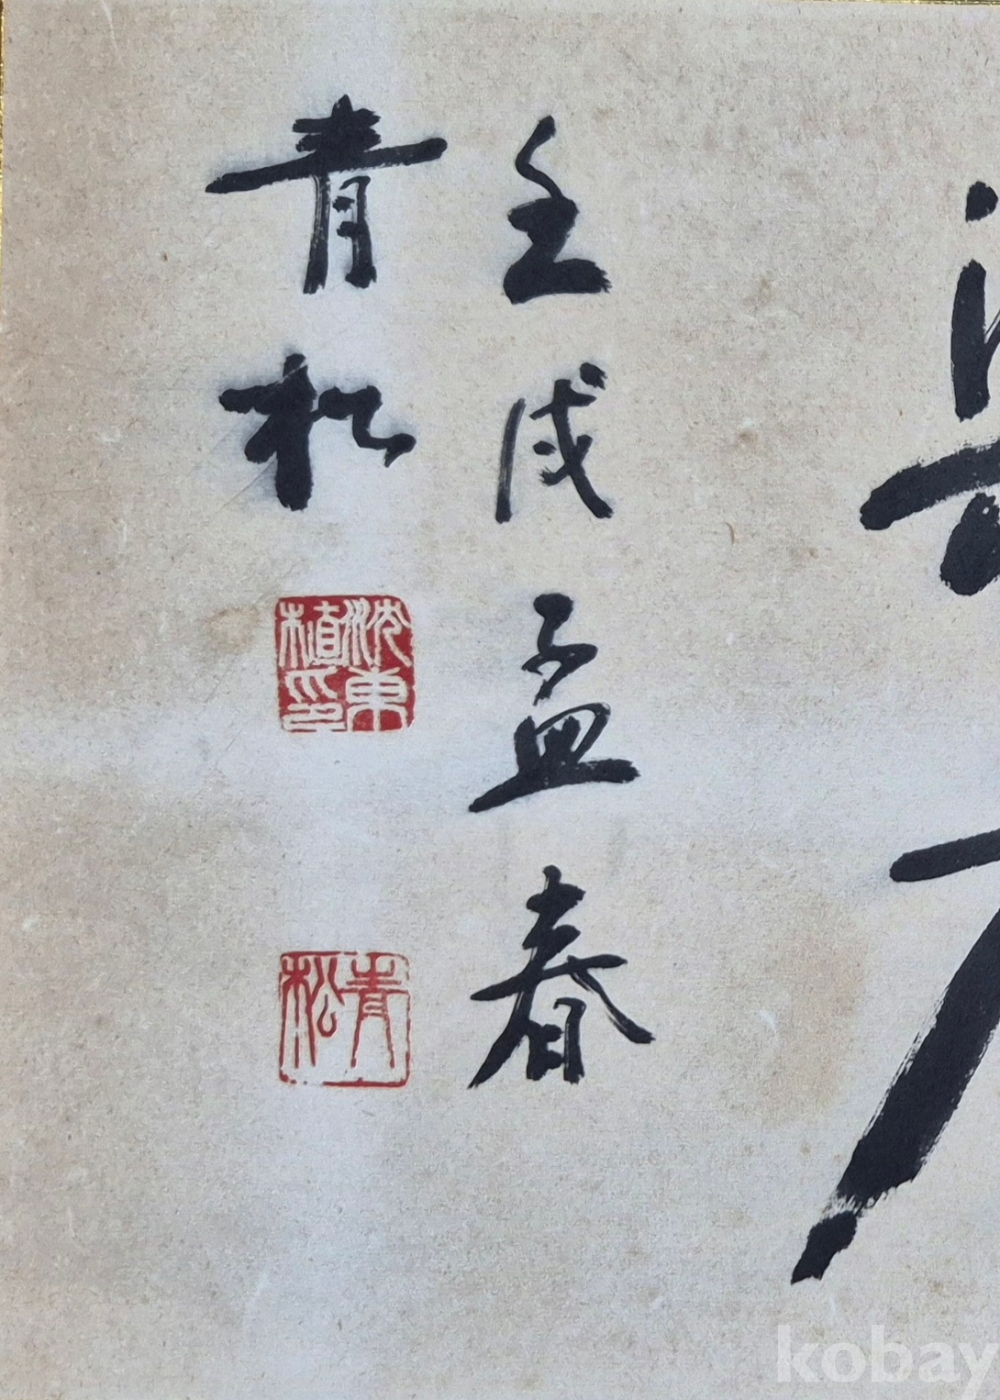 壬戌孟春
青松
沈東植印
青松
kobay